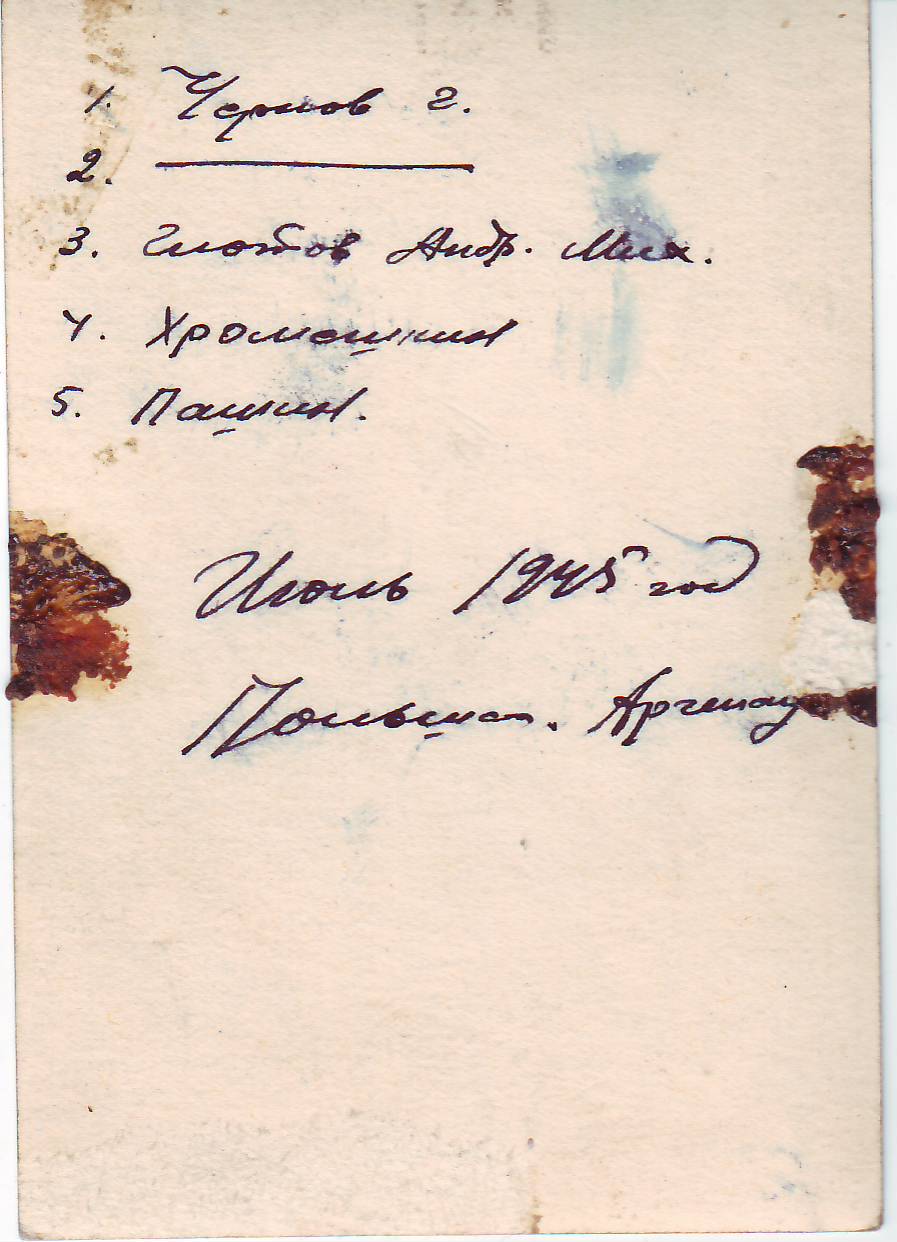 1. Чернов г.
2. ————
3. Глотов Андр. Мих.
4. Хромешкин
5. Пашкин.
Июнь 1945 год
Польша. Аргенау